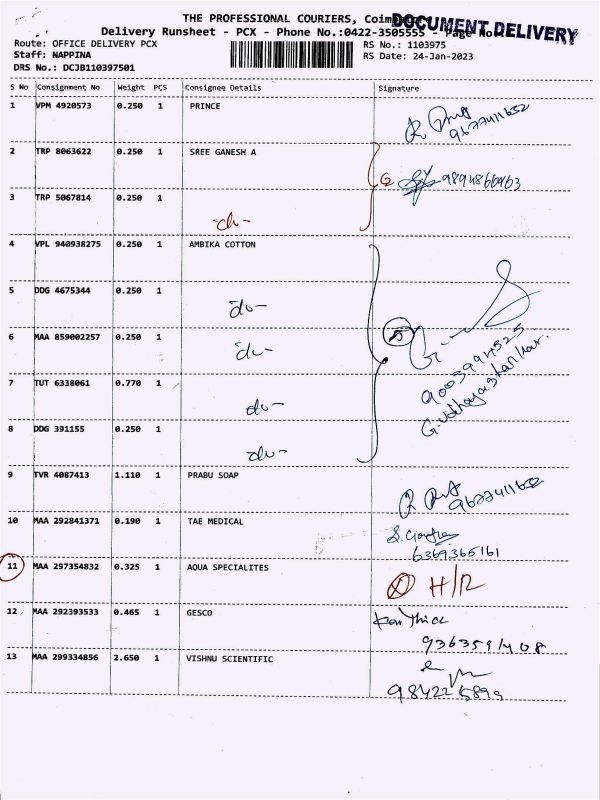 THE PROFESSIONAL COURIERS,
DOCUMENT DELIVERY
Delivery Runsheet - PCX - Phone No.:0422-3505555 - Page No
Route: OFFICE DELIVERY PCX
RS No.: 1103975
Staff: NAPPINA
RS Date: 24-Jan-2023
DRS No.: DCJB110397501
S No Consignment No Weight PCS Consignee Details Signature
1 VPM 4920573 0.250 1 PRINCE
9677411652
2 TRP 8063622 0.250 1 SREE GANESH A
3 TRP 5067814 0.250 1
-do-
4 VPL 940938275 0.250 1 AMBIKA COTTON
5 DDG 4675344 0.250 1
do-
6 MAA 859002257 0.250 1
do-
5
9003994525
G. Udhayashankar.
7 TUT 6338061 0.770 1
do-
8 DDG 391155 0.250 1
do-
9 TVR 4087413 1.110 1 PRABU SOAP
9677411652
10 MAA 292841371 0.190 1 TAE MEDICAL
6369365161
11 MAA 297354832 0.325 1 AQUA SPECIALITES
H/R
12 MAA 292393533 0.465 1 GESCO
13 MAA 299334856 2.650 1 VISHNU SCIENTIFIC